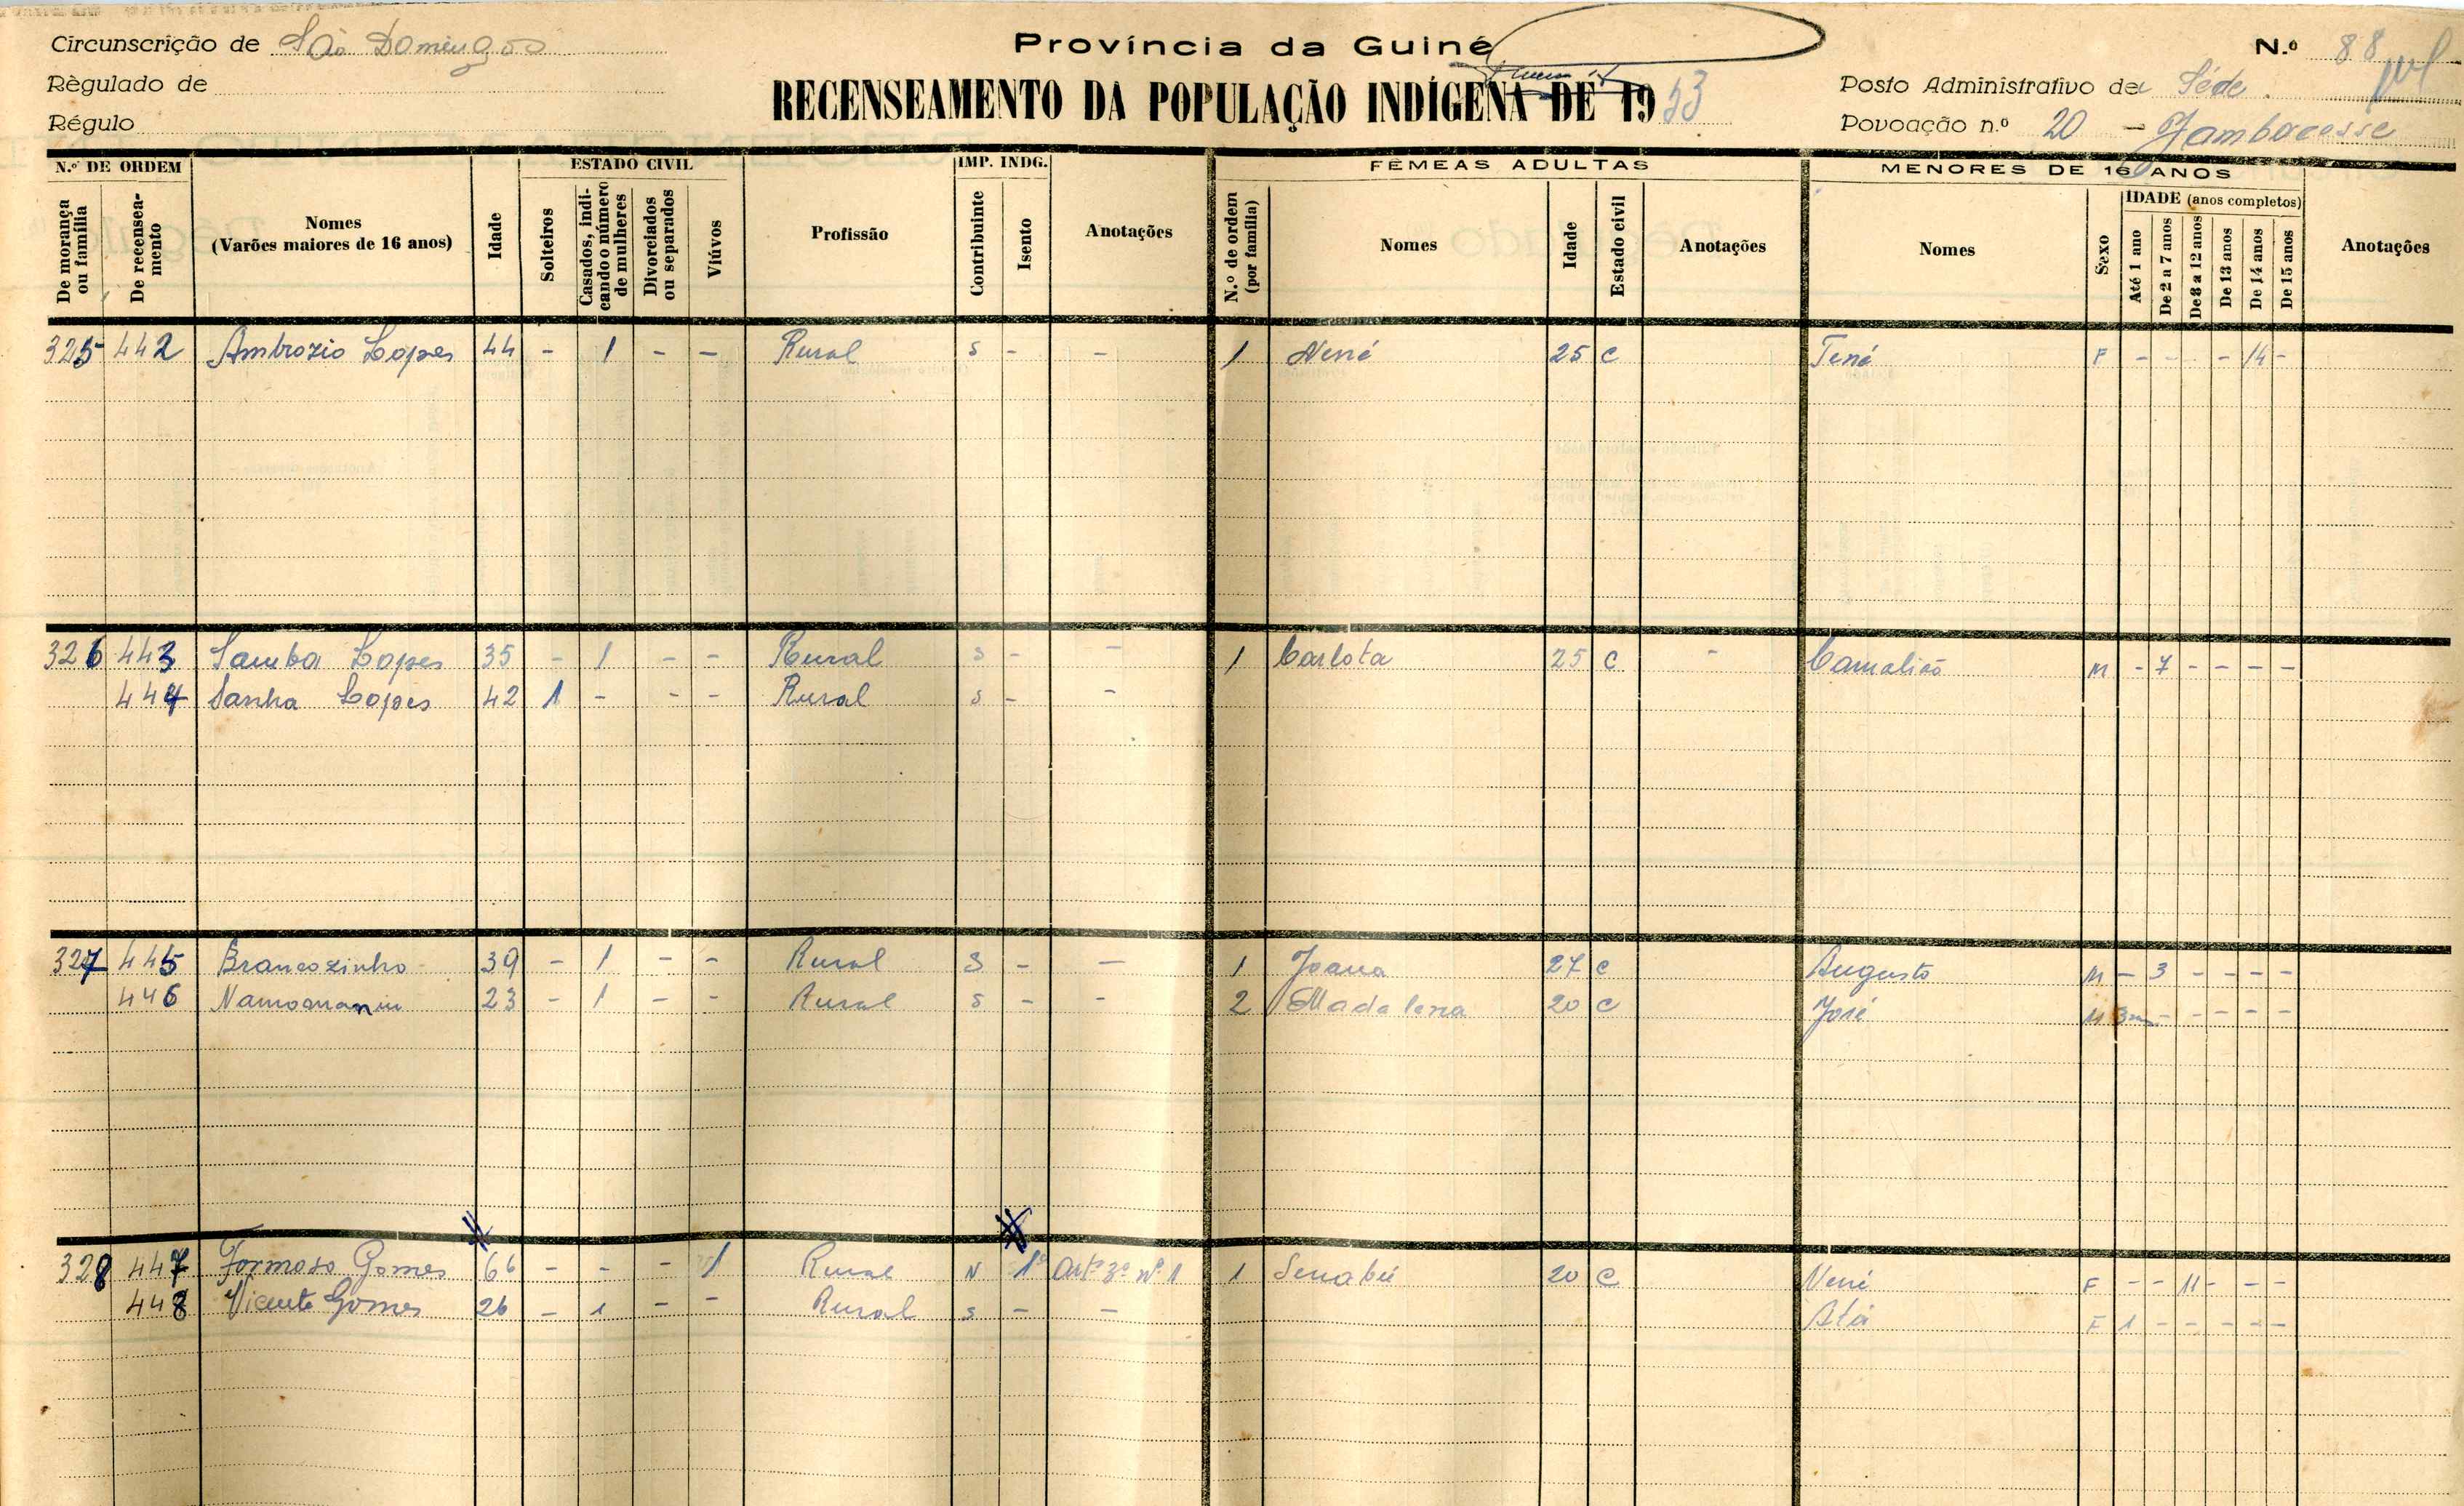 Circunscrição de São Domingos
Província da Guiné
N.º 88
Règulado de
RECENSEAMENTO DA POPULAÇÃO INDÍGENA DE 1953
Posto Administrativo de Séde
Régulo
Povoação n.º 20 - Jambacesse
N.º DE ORDEM
ESTADO CIVIL
IMP. INDG.
FÊMEAS ADULTAS
MENORES DE 16 ANOS
De morança ou família
De recenseamento
Nomes (Varões maiores de 16 anos)
Idade
Solteiros
Casados, indicando o número de mulheres
Divorciados ou separados
Viúvos
Profissão
Contribuinte
Isento
Anotações
N.º de ordem (por família)
Nomes
Idade
Estado civil
Anotações
Nomes
Sexo
IDADE (anos completos)
Até 1 ano
De 2 a 7 anos
De 8 a 12 anos
De 13 anos
De 14 anos
De 15 anos
Anotações
325 442 Ambrozio Lopes 44 - 1 - - Rural S - - 1 Nené 25 C Tené F - - - - 14 -
326 443 Samba Lopes 35 - 1 - - Rural S - - 1 Carlota 25 C - Camalião M - 7 - - - -
444 Sanha Lopes 42 1 - - - Rural S - -
327 445 Brancozinho 39 - 1 - - Rural S - - 1 Joana 27 C Augusto M - 3 - - - -
446 23 - 1 - - Rural S - - 2 Madalena 20 C José M 3m - - - - -
328 447 Formoso Gomes 66 - - - 1 Rural N 1 Artº 3º nº 1 1 Senabú 20 C Nené F - - 11 - - -
448 Vicente Gomes 26 - 1 - - Rural S - - Atá F 1 - - - - -